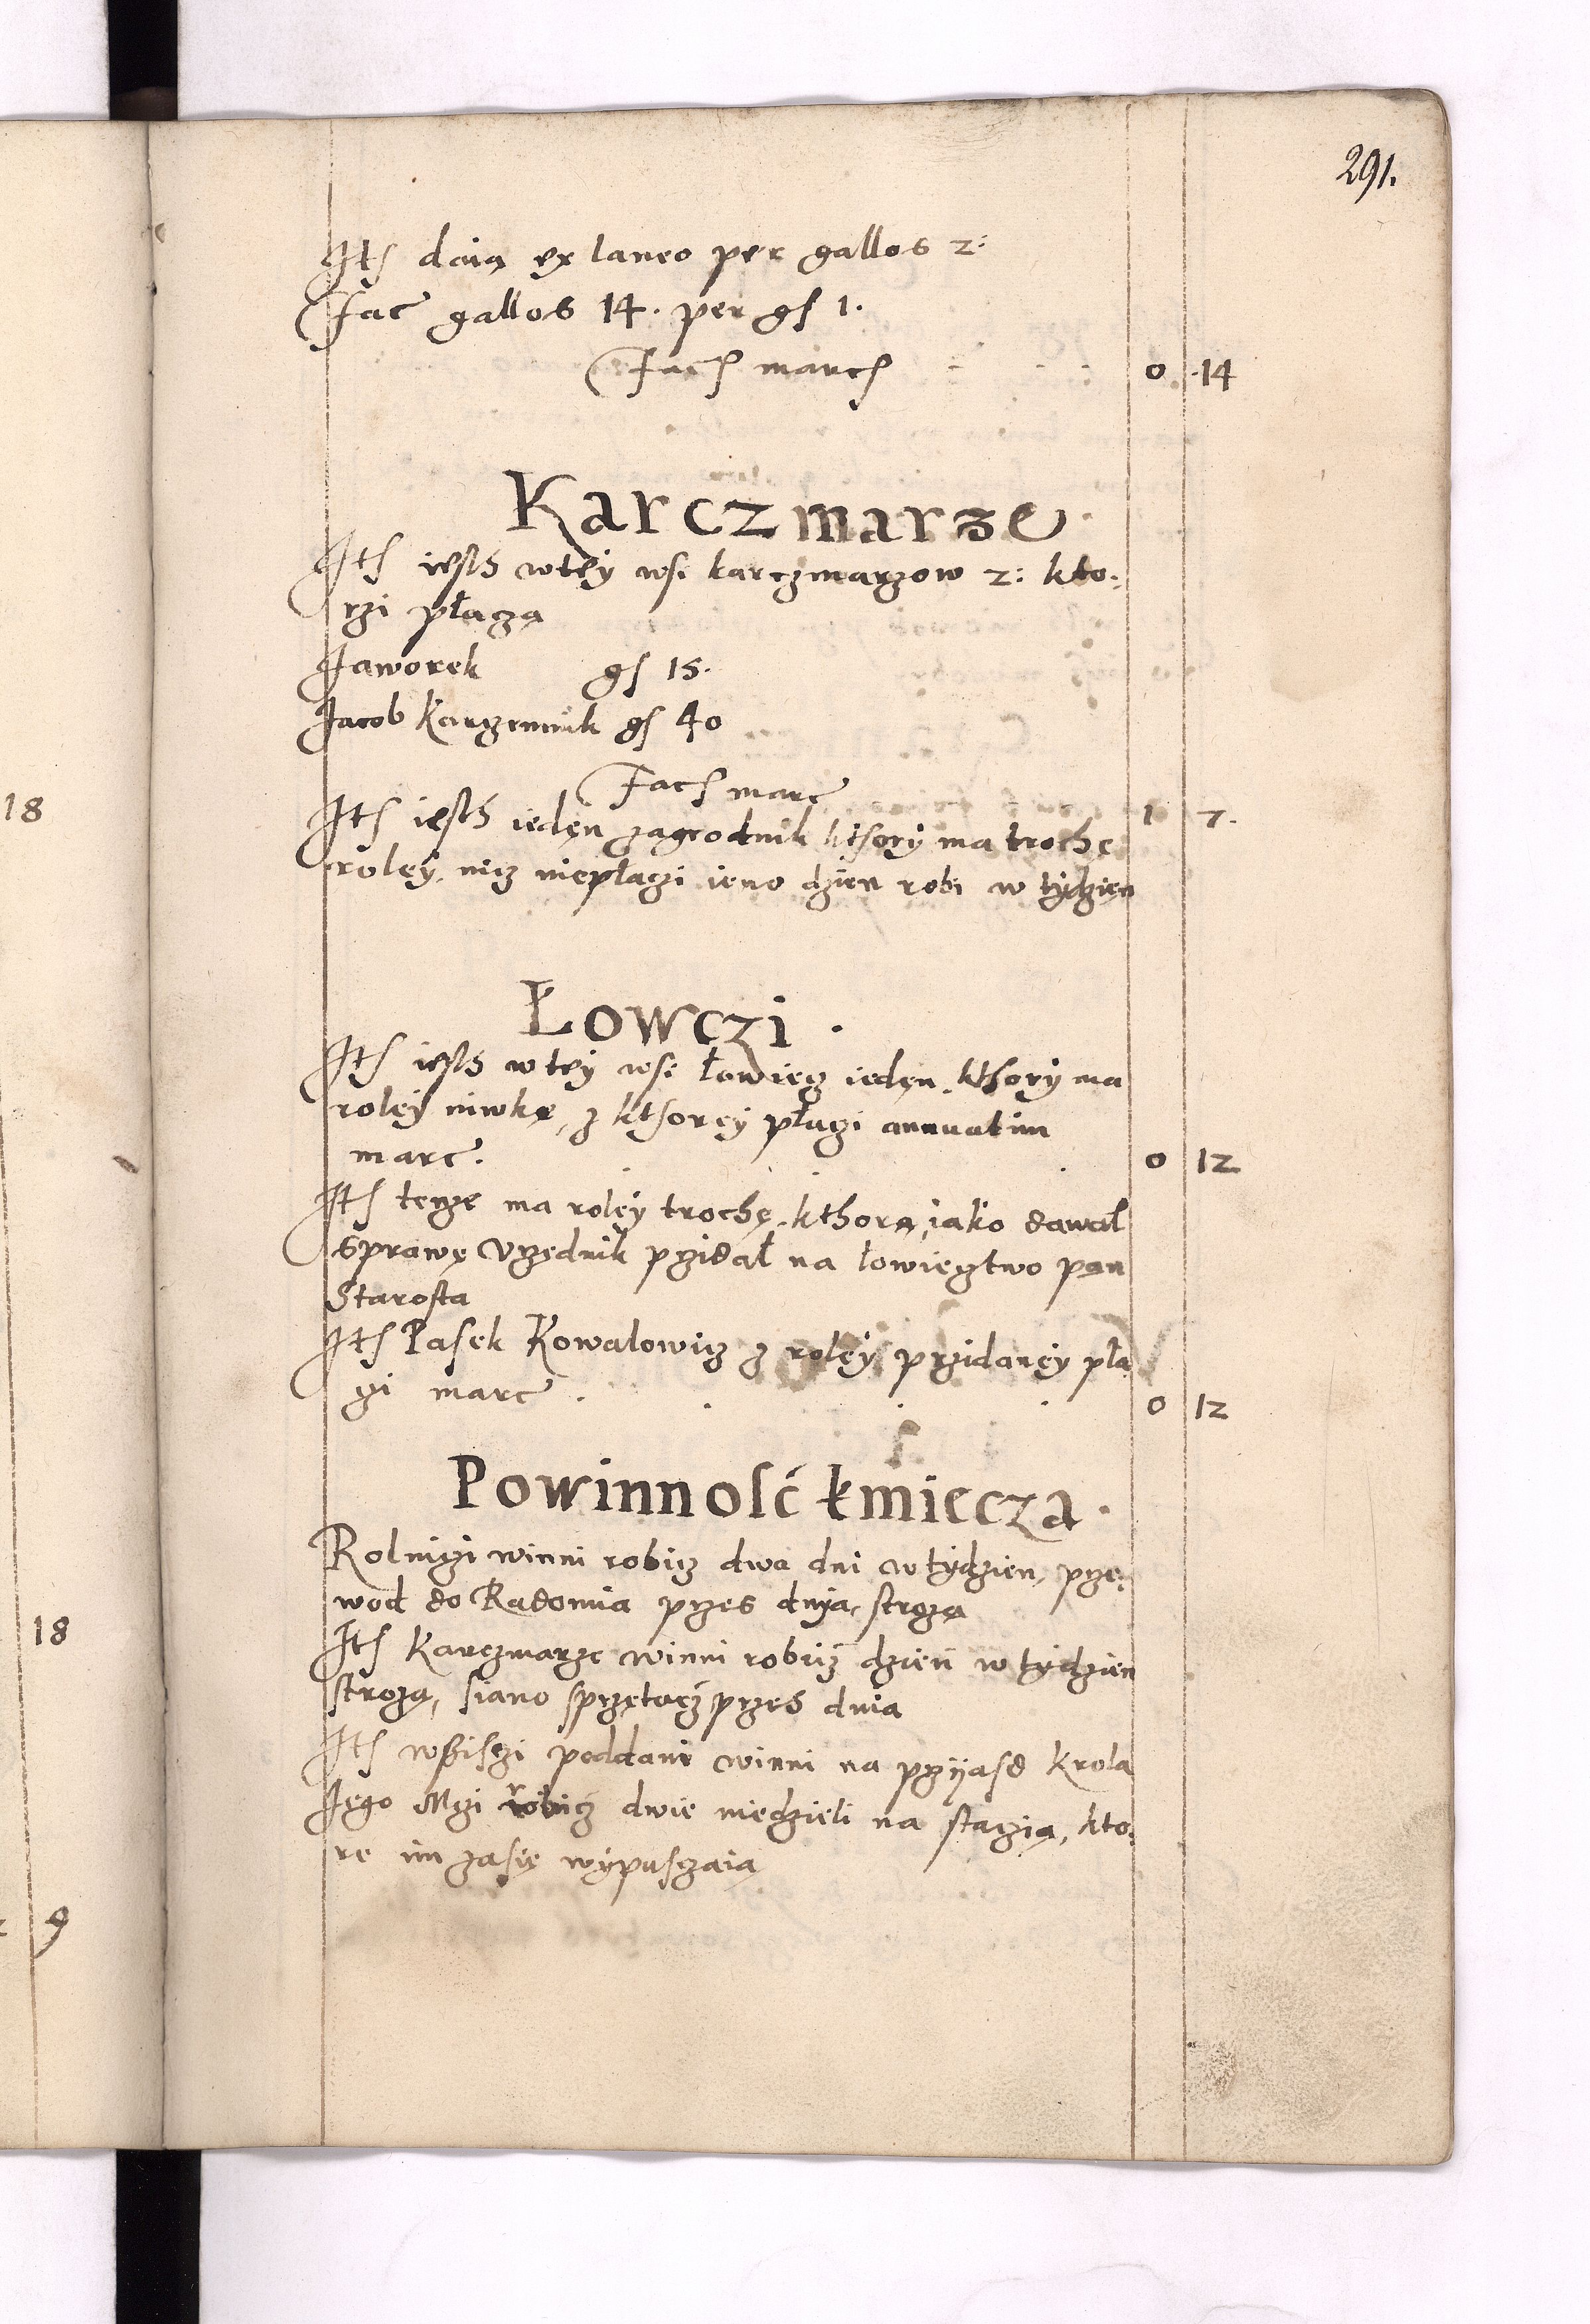 291.
Itҽ daią ex laneo per gallos 2:
Fac gallos 14. per gſ 1.
Facſ marcſ 0 14
Karczmarze
Itſ iesth wtey wsi karczmarzow 2: kto:
rzi płaczą
Jaworek gſ 15.
Jacob Karczemnik gſ 40
Facſ marc 1 7.
Itſ iesth ieden zagrodnik kthory ma trochę
roley, nicz niepłaczi ieno dzien robi w tydzien
Łowczi
Itſ iesth w tey wsi łowiecz ieden, kthory ma
roley niwkę, z kthorey płaczi annuatim
marc. 0 12
Itſ tenze ma roley trochę, kthorą, iako dawał
sprawę Vrzędnik przidał na łowiecztwo pan
Starosta
Itſ Pasek Kowalowicz z roley przidaney pła
czi marc 0 12
Powinnosć kmiecza
Rolniczi winni robicz dwa dni w tydzien, prze:
wod do Radomia przes dnya, strożą
Itſ Karczmarze winni robicz dzień w tydzien
strożą, siano sprzętacz przes dnia
Itſ wszisczi poddani winni na przyasd Krola
Jego Mczi robicz dwie niedzieli na staczią, kto:
re im zasię wypusczaią
18
18
9